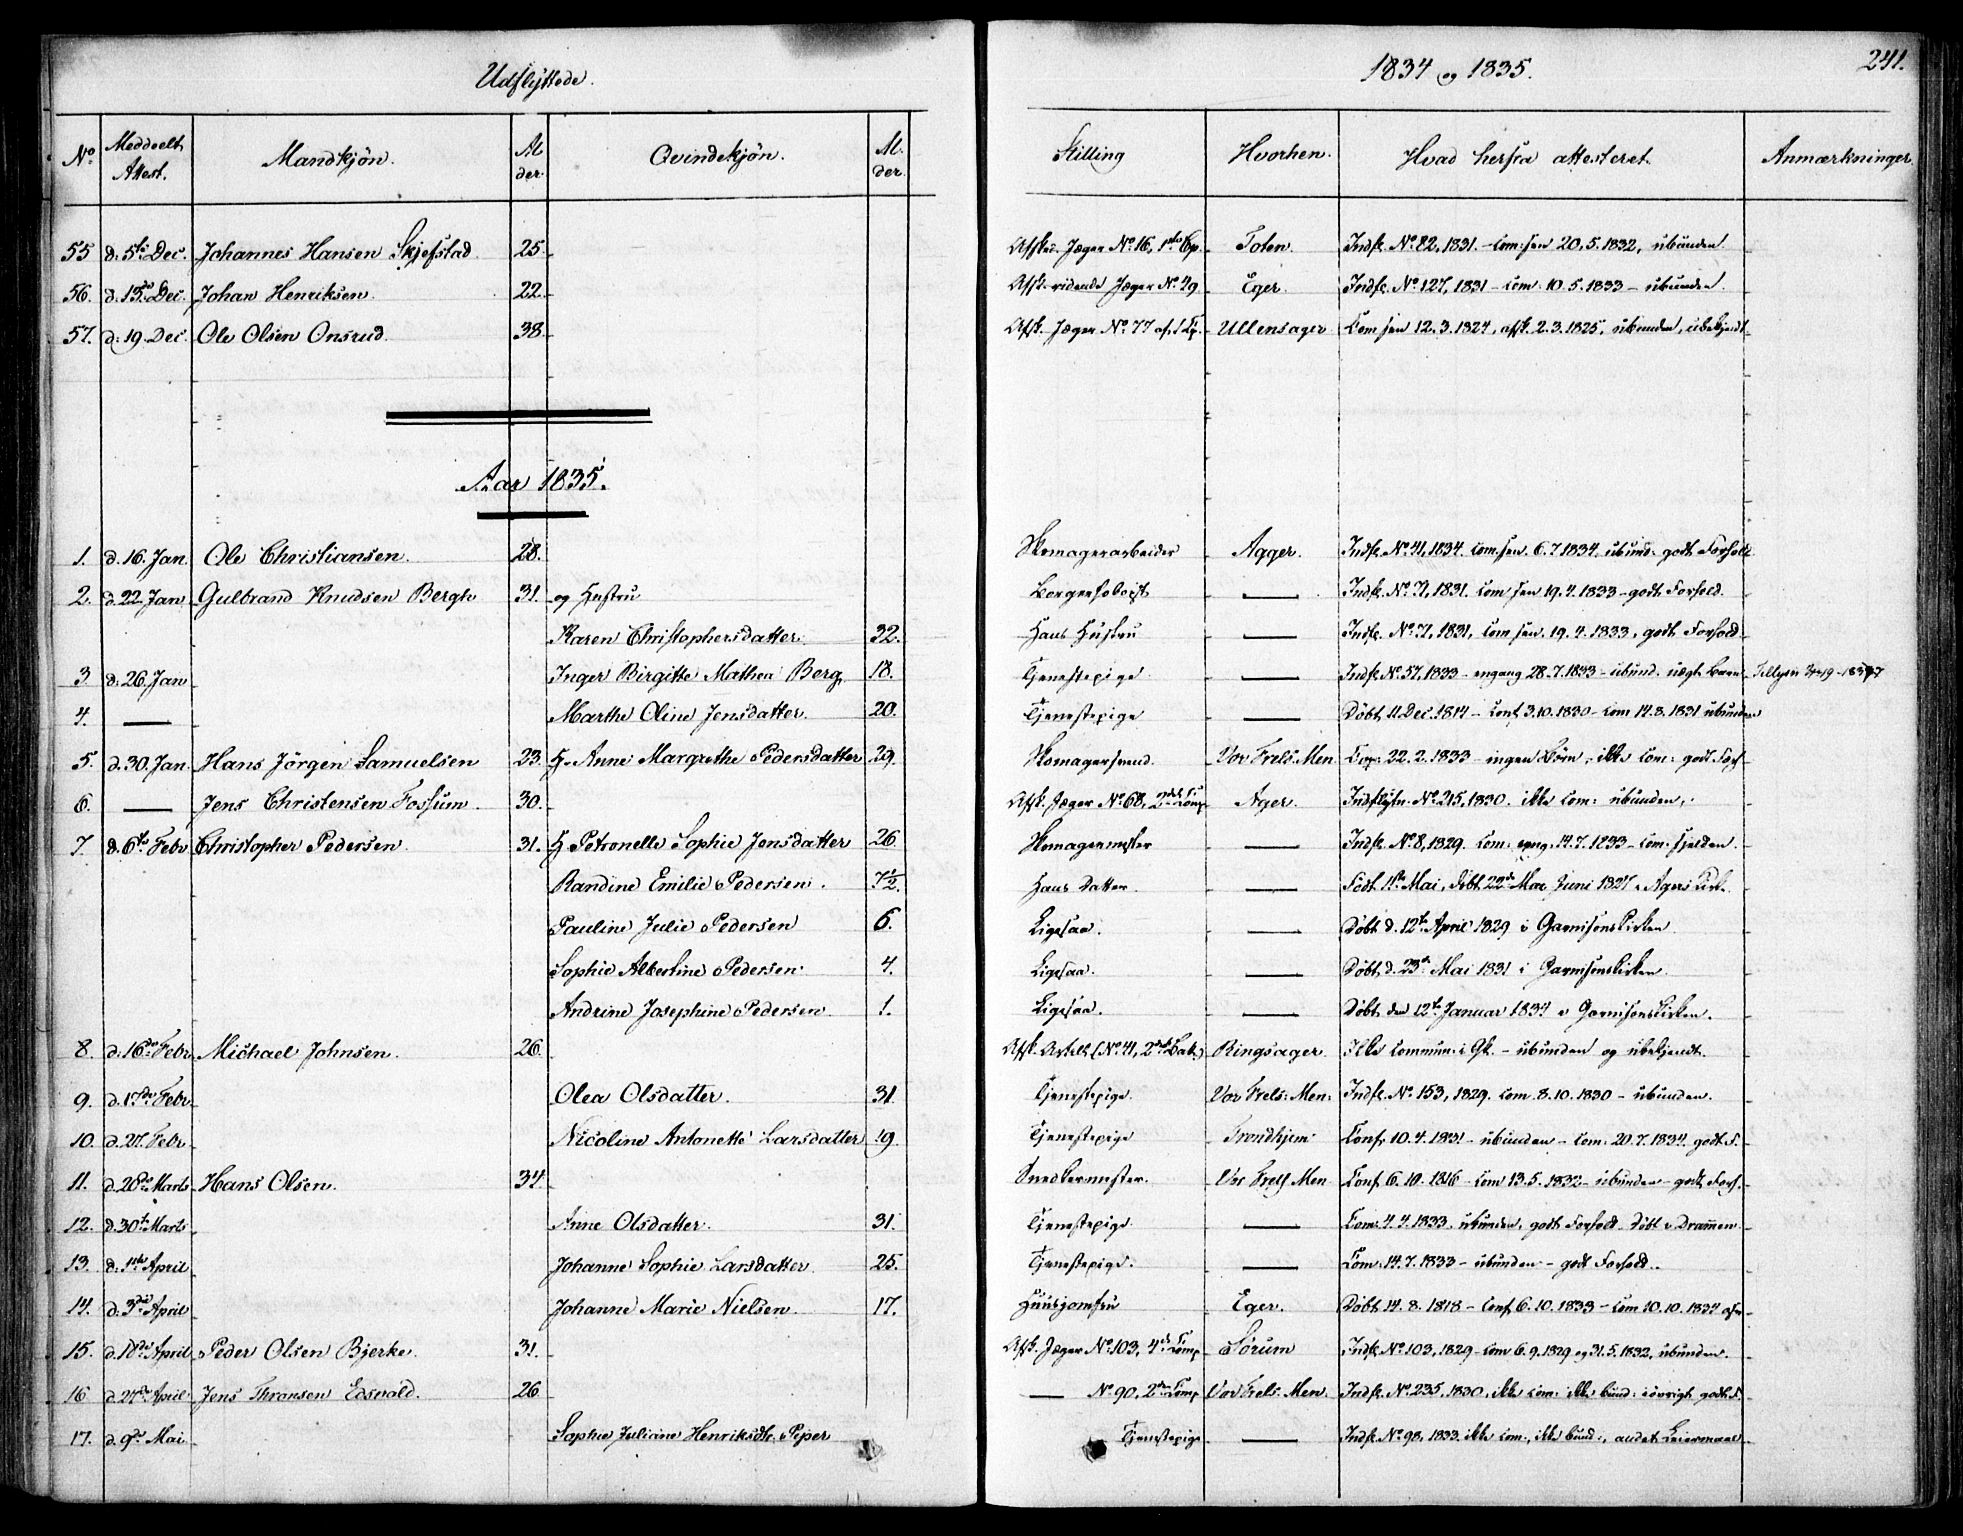 Udflyttede. 1834 og 1835. 241.
No Meddeelt Attest. Mandkjön. Alder. Qvindekjön. Alder. Stilling Hvorhen. Hvad herfra attesteret. Anmærkninger.
55 d: 5te Dec. Johannes Hansen Skjefstad 25. Afsk. Jæger No. 16, 1ste Cp. Toten. Indfl. No. 82, 1831. - com: sen 20.5.1832, ubunden.
56. d. 13de Dec. Johan Henriksen. 22. Afsk. ridende Jæger No. 29 Eger. Indfl. No. 127, 1831 - com: 10.5.1833 - ubunden.
57. d: 19. Dec. Ole Olsen Onsrud. 38. Afsk. Jæger No. 77 af 1 Cp. Ullensager Com sen 12.3.1824, afsk. 2.3.1825, ubunden, ubekjendt
Aar 1835.
1. d. 16. Jan. Ole Christiansen. 28. Skomagerarbeider Agger. Indfl. No. 41, 1834. com. sen. 6.7.1834. ubund: godt Forhold
2. d. 22 Jan. Gulbrand Knudsen Bergh 31. og Hustru — Indfl. No. 71, 1831. com sen 19.4.1833 - godt Forhold.
Karen Christophersdatter. 32. Hans Hustru — Indfl. No. 71, 1831, com sen. 19.4.1833, godt Forhold.
3 d. 26. Jan Inger Birgitte Mathea Berg, 18. Tjenestepige — Indfl. No. 57, 1833 - engang 28.7.1833 - ubund. uægt Barn
4. — Marthe Oline Jensdatter. 20. Tjenestepige — Döbt 11 Dec. 1814 - Conf. 3.10.1830 - com 14.8.1831 ubunden
5. d. 30. Jan. Hans Jörgen Samuelsen 23. H. Anne Margrethe Pedersdatter 29. Skomagersvend. Vor Frels: Men Cop: 22.2.1833 - ingen Börn, ikke com: godt Forh
6. — Jens Christensen Fossum. 30. Afsk. Jæger No. 68, 2det Comp Ager. Indflytn. No. 215, 1830. ikke com: ubunden,
7. d. 6te Febr Christopher Pedersen. 31. H. Petronelle Sophie Jensdatter 26. Skomagermester — Indfl. No. 8, 1829. com: eng: 14.7.1833 - com: sjelden.
Randine Emilie Pedersen. 7½. Hans Datter. — Föd 11te Mai, döbt 22de Mai Juni 1827 i Agers Kirke
Pauline Julie Pedersen 6. Ligesaa. — Döbt d. 12te April 1829 i Garnisonskirken
Sophie Albertine Pedersen 4. Ligesaa. — Döbt d. 23de Mai 1831 i Garnisonskirken.
Andrine Josephine Pedersen. 1. Ligesaa. — Döbt den 12te Januar 1834 i Garnisonskirken.
8. d. 16de Febr. Michael Johnsen. 26. Afsk. Artill. (No. 41, 2det Bat.) Ringsager. Ikke commun: i Gk. - ubunden og ubekjendt.
9. d. 17de Febr. Olea Olsdatter. 31 Tjenestepige. Vor Frels: Men: Indfl. No. 153, 1829. com 8.10.1830 - ubunden.
10. d. 27. Febr Nicoline Antonette Larsdatter 19. Tjenestepige Trondhjem Conf. 10.4.1831 - ubunden - com: 20.7.1834. godt F.
11. d. 28de Marts Hans Olsen. 34. Snedkermester. Vor Frels Men Conf. 6.10.1816 - com 13.5.1832 - ubunden - godt Forh.
12. d. 30te Marts Anne Olsdatter. 31. Tjenestepige — Com: 4.4.1833. ubunden, godt Forhold. Döbt i Drammen
13. d. 1ste April Johanne Sophie Larsdatter 25. Tjenestepige. — Com: 14.7.1833 - ubunden - godt Forhold.
14. d. 3die April Johanne Marie Nielsen. 17. Huusjomfru Eger. Döbt 14.8.1818 - Conf. 6.10.1833 - com 10.10.1834
15. d. 18de April Peder Olsen Bjerke. 31. Afsk. Jæger No. 103, 4de Comp Sörum Indfl. No. 103, 1829 - com 6.9.1829 og 31.5.1832, ubunden.
16 d. 27de April Jens Thronsen Edsvold. 26 — No. 90, 2det Comp Vor Frels: Men. Indfl. No. 235, 1830, ikke com: ikke bund: iövrigt godt F.
17. d. 9de Mai Sophie Juliane Henriksdtr. Piper Tjenestepige — Indfl. No. 98, 1833. ikke com:, ikke bund:, andet Leiermaal